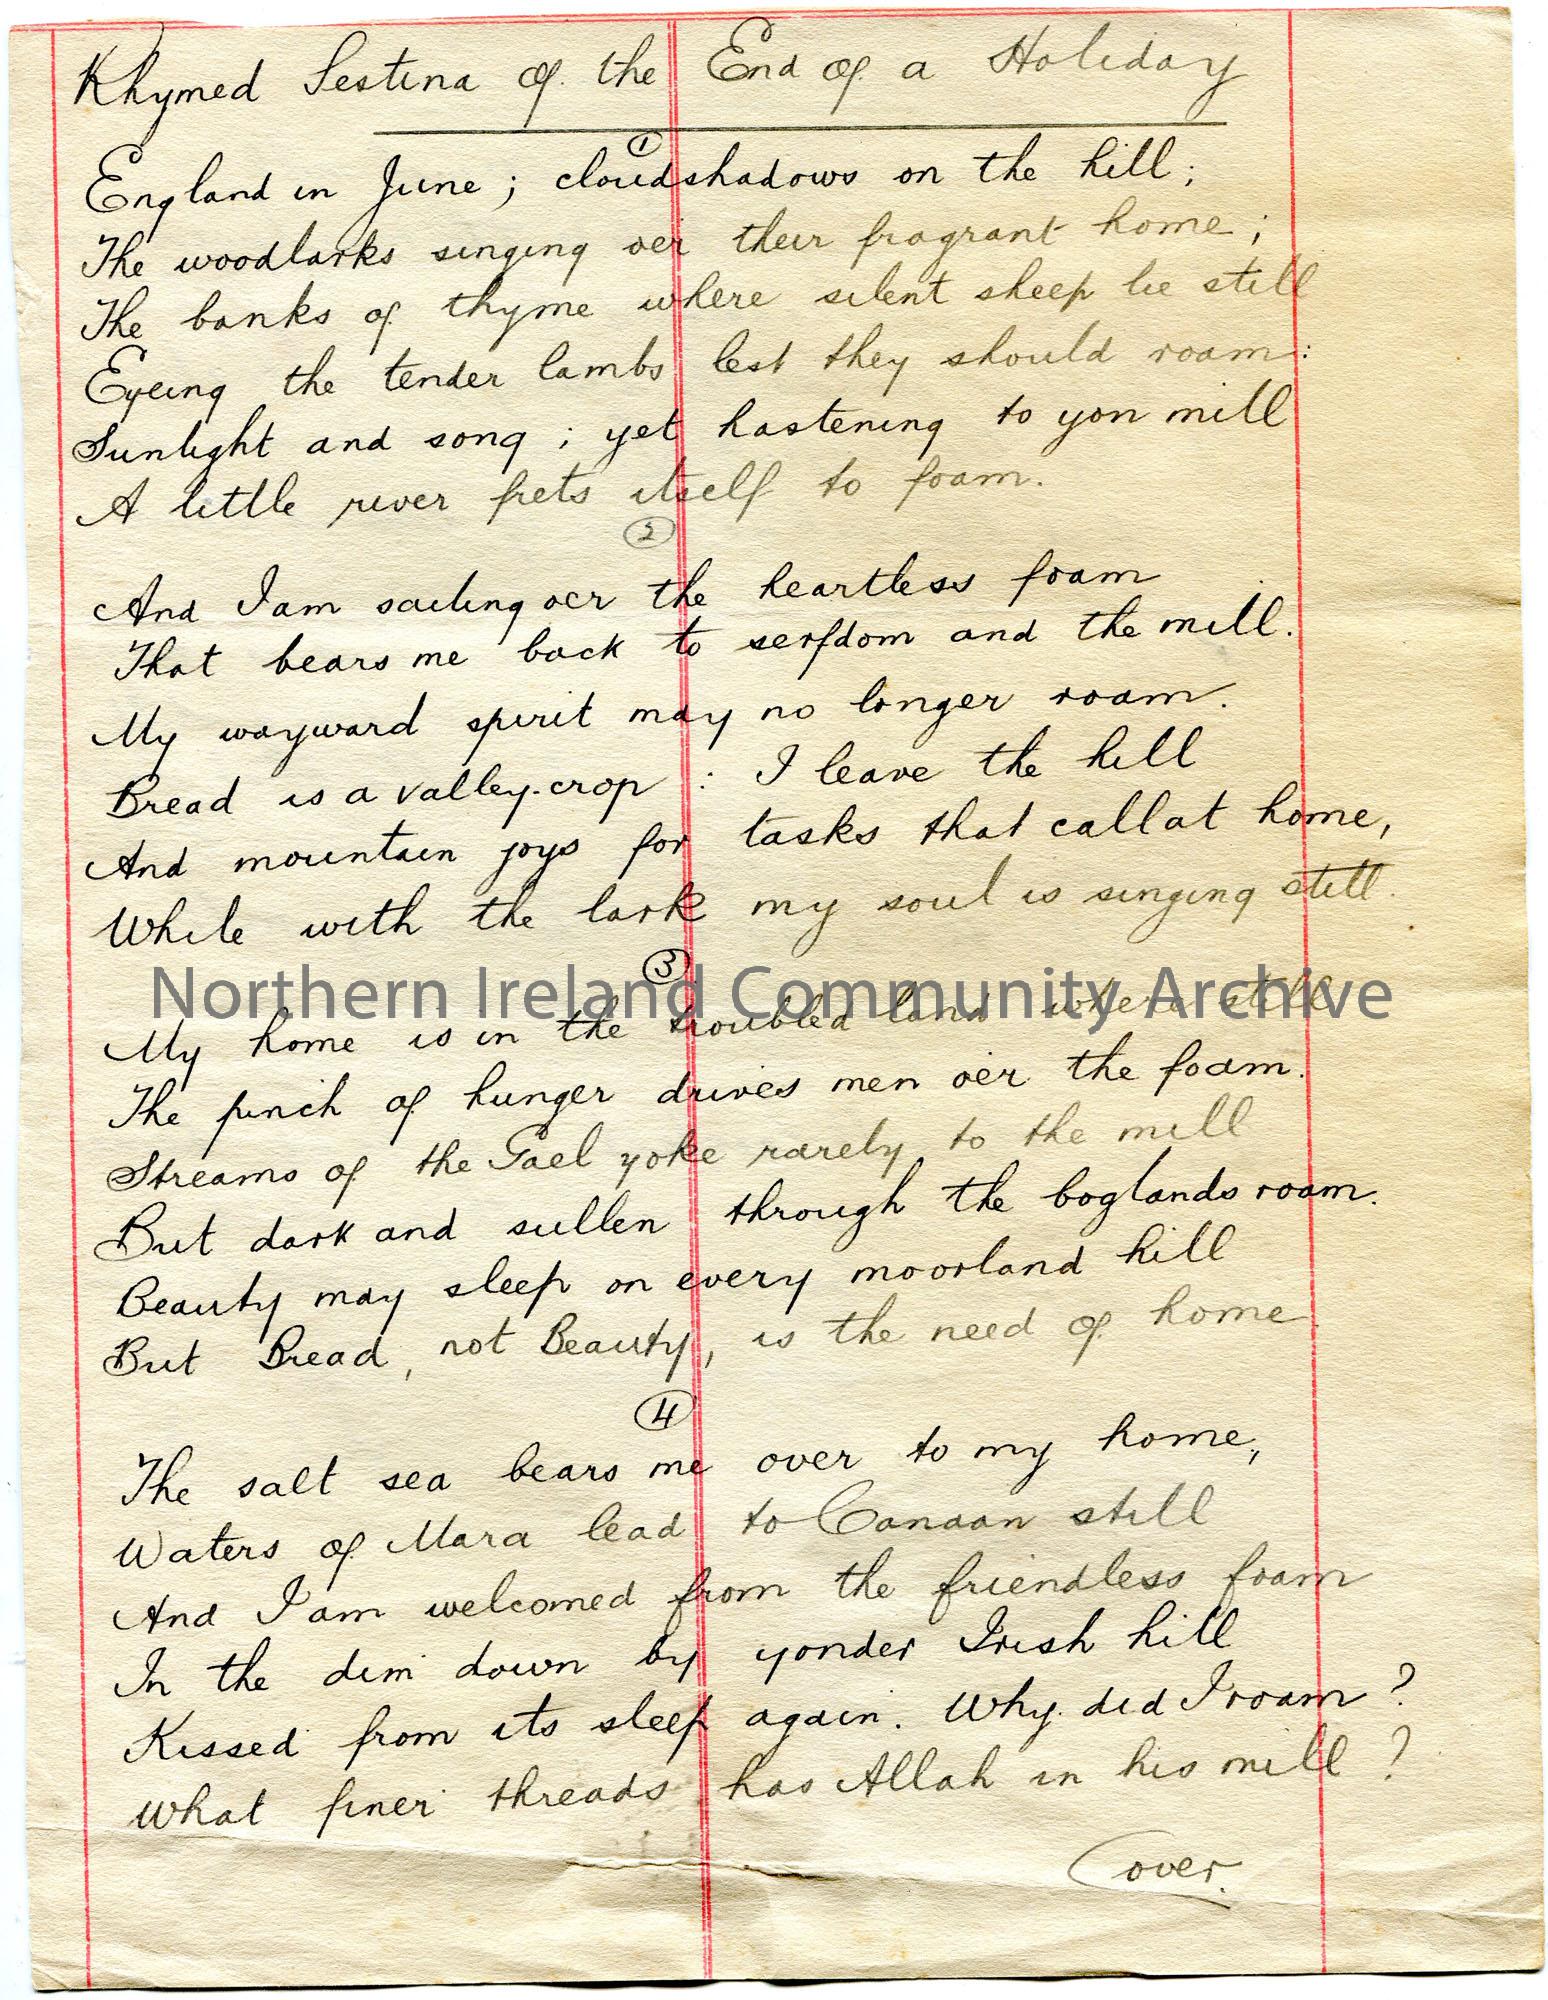 Rhymed Sestina of the End of a Holiday
①
England in June; cloudshadows on the hill;
The woodlarks singing oer their fragrant home;
The banks of thyme where silent sheep lie still
Eyeing the tender lambs lest they should roam:
Sunlight and song; yet hastening to yon mill
A little river frets itself to foam.
②
And I am sailing oer the heartless foam
That bears me back to serfdom and the mill.
My wayward spirit may no longer roam.
Bread is a valley-crop: I leave the hill
And mountain joys for tasks that call at home,
While with the lark my soul is singing still.
③
Northern Ireland Community Archive
My home is in the troubled land where still
The pinch of hunger drives men oer the foam.
Streams of the Gael yoke rarely to the mill
But dark and sullen through the boglands roam.
Beauty may sleep on every moorland hill
But Bread, not Beauty, is the need of home
④
The salt sea bears me over to my home,
Waters of Mara lead to Canaan still
And I am welcomed from the friendless foam
In the dim down by yonder Irish hill
Kissed from its sleep again. Why did I roam?
What finer threads has Allah in his mill?
(over.